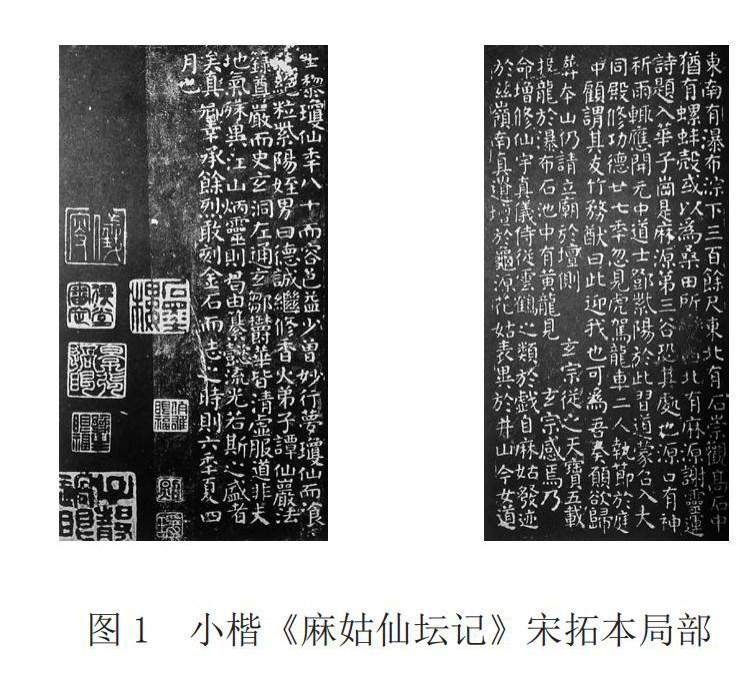 東南有瀑布淙下三百餘尺東北有石崇觀高石中
猶有螺蚌殼或以為桑田所西北有麻源謝靈運
詩題入華子崗是麻源第三谷恐其處也源口有神
祈雨輒應開元中道士鄧紫陽於此習道蒙召入大
同殿修功德廿七年忽見虎駕龍車二人執節於庭
中顧謂其友竹務猷曰此迎我也可為吾奏願欲歸
葬本山仍請立廟於壇側 玄宗從之天寶五載
投龍於瀑布石池中有黃龍見 玄宗感焉乃
命增修仙宇真儀侍從雲鶴之類於戲自麻姑發迹
於茲嶺南真遺壇於龜源花姑表異於井山今女道
士黎瓊仙年八十而容色益少曾妙行夢瓊仙而飡
絕粒紫陽姪男曰德誠繼修香火弟子譚仙巖法
籙尊嚴而史玄洞左通玄鄒鬱華皆清虛服道非夫
地氣殊異江山炳靈則曷由纂懿流光若斯之盛者
矣真卿幸承餘烈敢刻金石而志之時則六年夏四
月也
石墨樓
图1 小楷《麻姑仙坛记》宋拓本局部